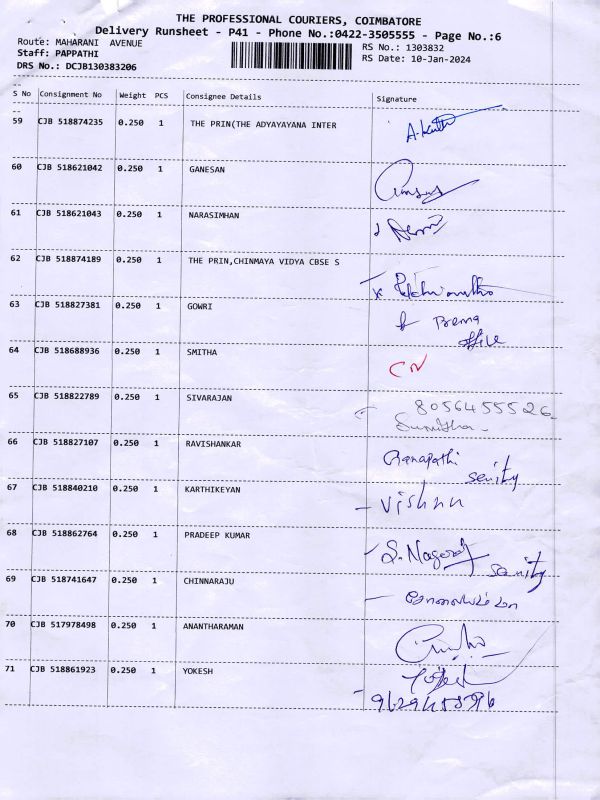 THE PROFESSIONAL COURIERS, COIMBATORE
Delivery Runsheet - P41 - Phone No.:0422-3505555 - Page No.:6
Route: MAHARANI AVENUE
RS No.: 1303832
Staff: PAPPATHI
RS Date: 10-Jan-2024
DRS No.: DCJB130383206
S No Consignment No Weight PCS Consignee Details Signature
59 CJB 518874235 0.250 1 THE PRIN(THE ADYAYAYANA INTER
60 CJB 518621042 0.250 1 GANESAN
61 CJB 518621043 0.250 1 NARASIMHAN
62 CJB 518874189 0.250 1 THE PRIN,CHINMAYA VIDYA CBSE S
63 CJB 518827381 0.250 1 GOWRI Prema
office
64 CJB 518688936 0.250 1 SMITHA CN
65 CJB 518822789 0.250 1 SIVARAJAN 8056455526
Sumitha
66 CJB 518827107 0.250 1 RAVISHANKAR Ganapathi
senity
67 CJB 518840210 0.250 1 KARTHIKEYAN - Vishnu
68 CJB 518862764 0.250 1 PRADEEP KUMAR S. Nagaraj
senity
69 CJB 518741647 0.250 1 CHINNARAJU
70 CJB 517978498 0.250 1 ANANTHARAMAN
71 CJB 518861923 0.250 1 YOKESH Yokesh